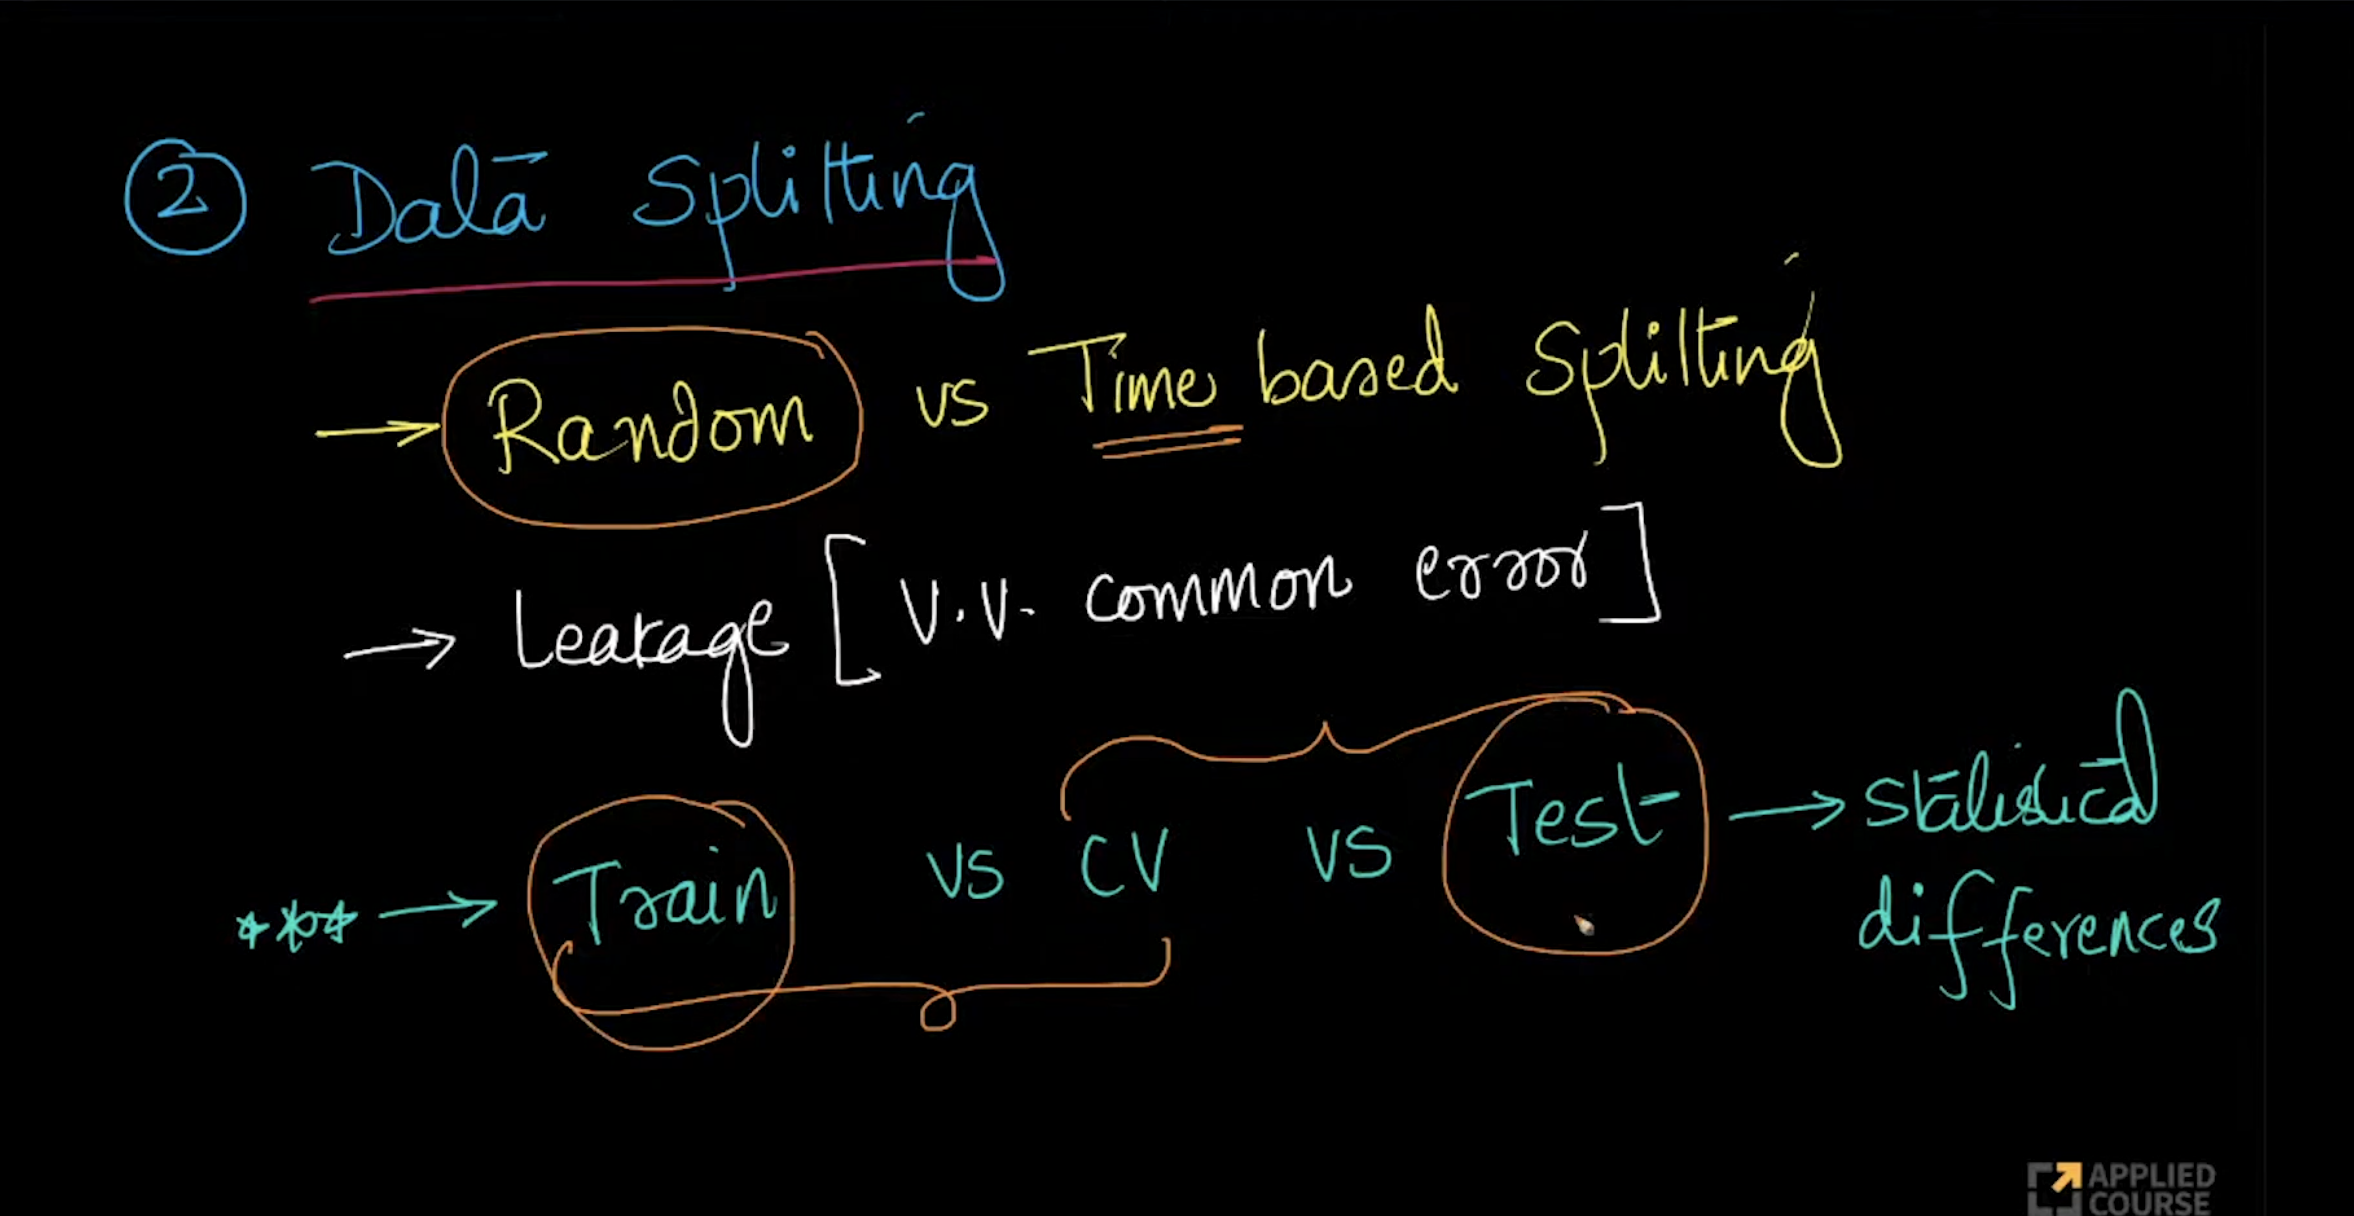 ② Data Splitting
→ Random vs Time based Splitting
→ Leakage [V.V. common error]
*** → Train vs CV vs Test → Statistical
differences
APPLIED
COURSE